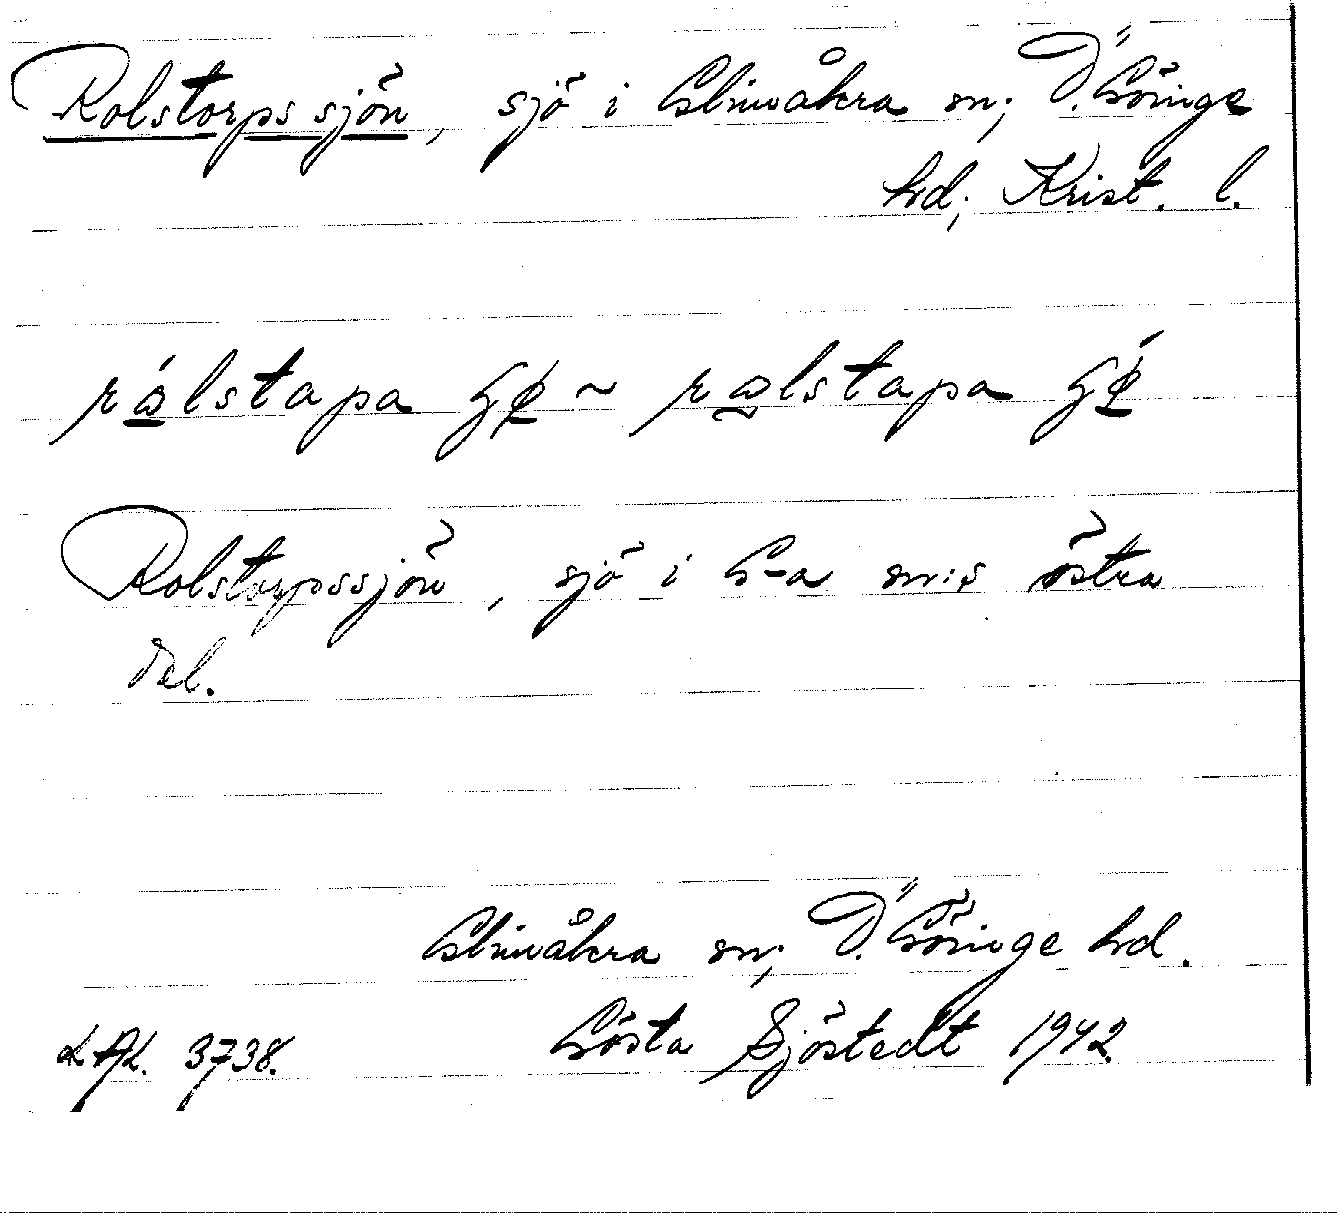 Rolstorpssjön, sjö i Glimåkra sn; Ö. Göinge
hd; Krist. l.
Rolstorpssjön, sjö i G-a sn:s östra
del.
Glimåkra sn; Ö. Göinge hd.
LAL. 3738. Gösta Sjöstedt 1942